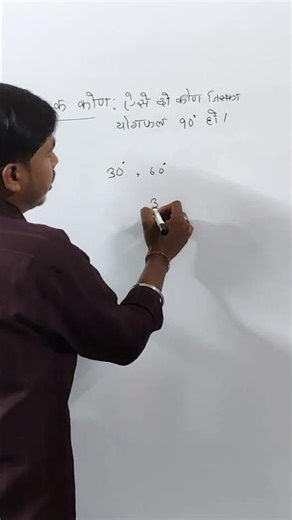 क कोण: ऐसे दो कोण जिसका
योगफल ९०° हो।
30°, 60°
3